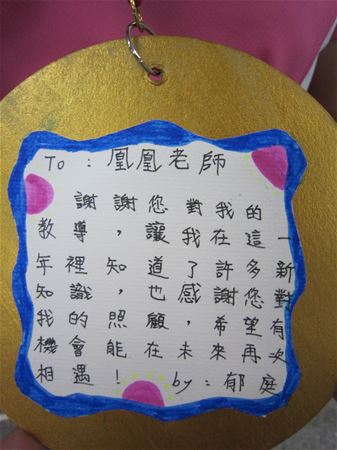 To：凰凰老師
謝謝您對我的
教導，讓我在這一
年裡知道了許多新
知識，也感謝您對
我的照顧，希望有
機會能在未來再次
相遇！by：郁庭